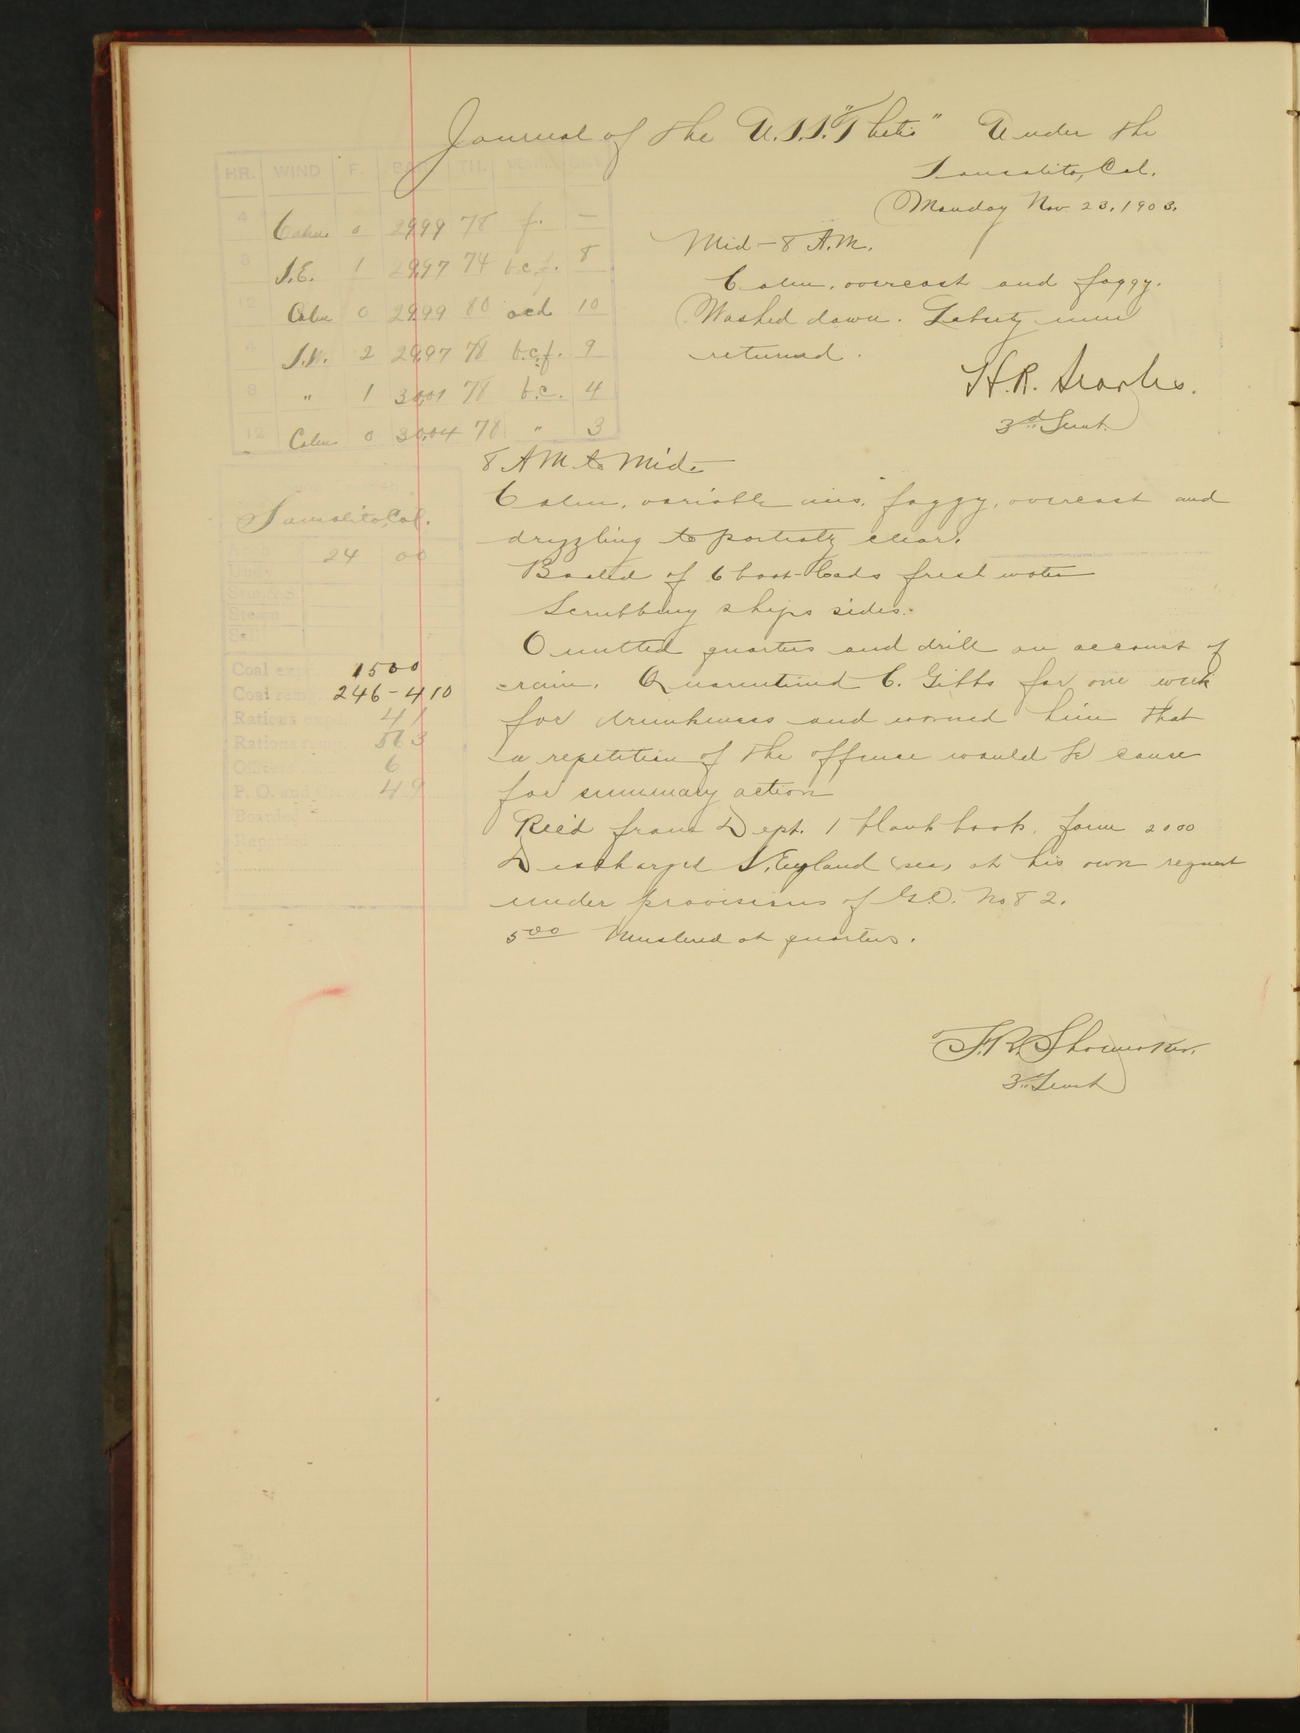 Journal of the U.S.S. "Thetis" Under the
Sausalito, Cal.
Monday Nov. 23, 1903.
HR. WIND F. BAR. TH.
4 Calm 0 29.99 78 f. —
8 S.E. 1 29.97 74 b.c.f. 8
12 Calm 0 29.99 80 ocd 10
4 S.W. 2 29.97 78 b.c.f. 9
8 " 1 30.01 78 b.c. 4
12 Calm 0 30.04 78 " 3
Mid – 8 A.M.
Calm, overcast and foggy.
Washed down. Liberty men
returned.
H.R. Searles.
3d Lieut.
8 AM to Mid.
Calm, variable airs, foggy, overcast and
drizzling to partialy clear.
Boated off 6 boat-loads fresh water
Scrubbing ships sides.
Omitted quarters and drill on account of
rain. Quarentined C. Gibbs for one week
for drunkeness and warned him that
a repetition of the offense would be cause
for summary action
Rec'd from Dept. 1 blank book, form 2000
Discharged England sea, at his own request
under provisions of G.O. No 82.
5 00 Mustered at quarters.
F.R. Shoemaker.
3" Lieut
Sausalito, Cal.
24 00
Steam
Sail
Coal exp. 1500
Coal rem. 246-410
Rations expd. 41
Rations remg. 563
Officers 6
P. O. and Crew 49
Boarded
Reported